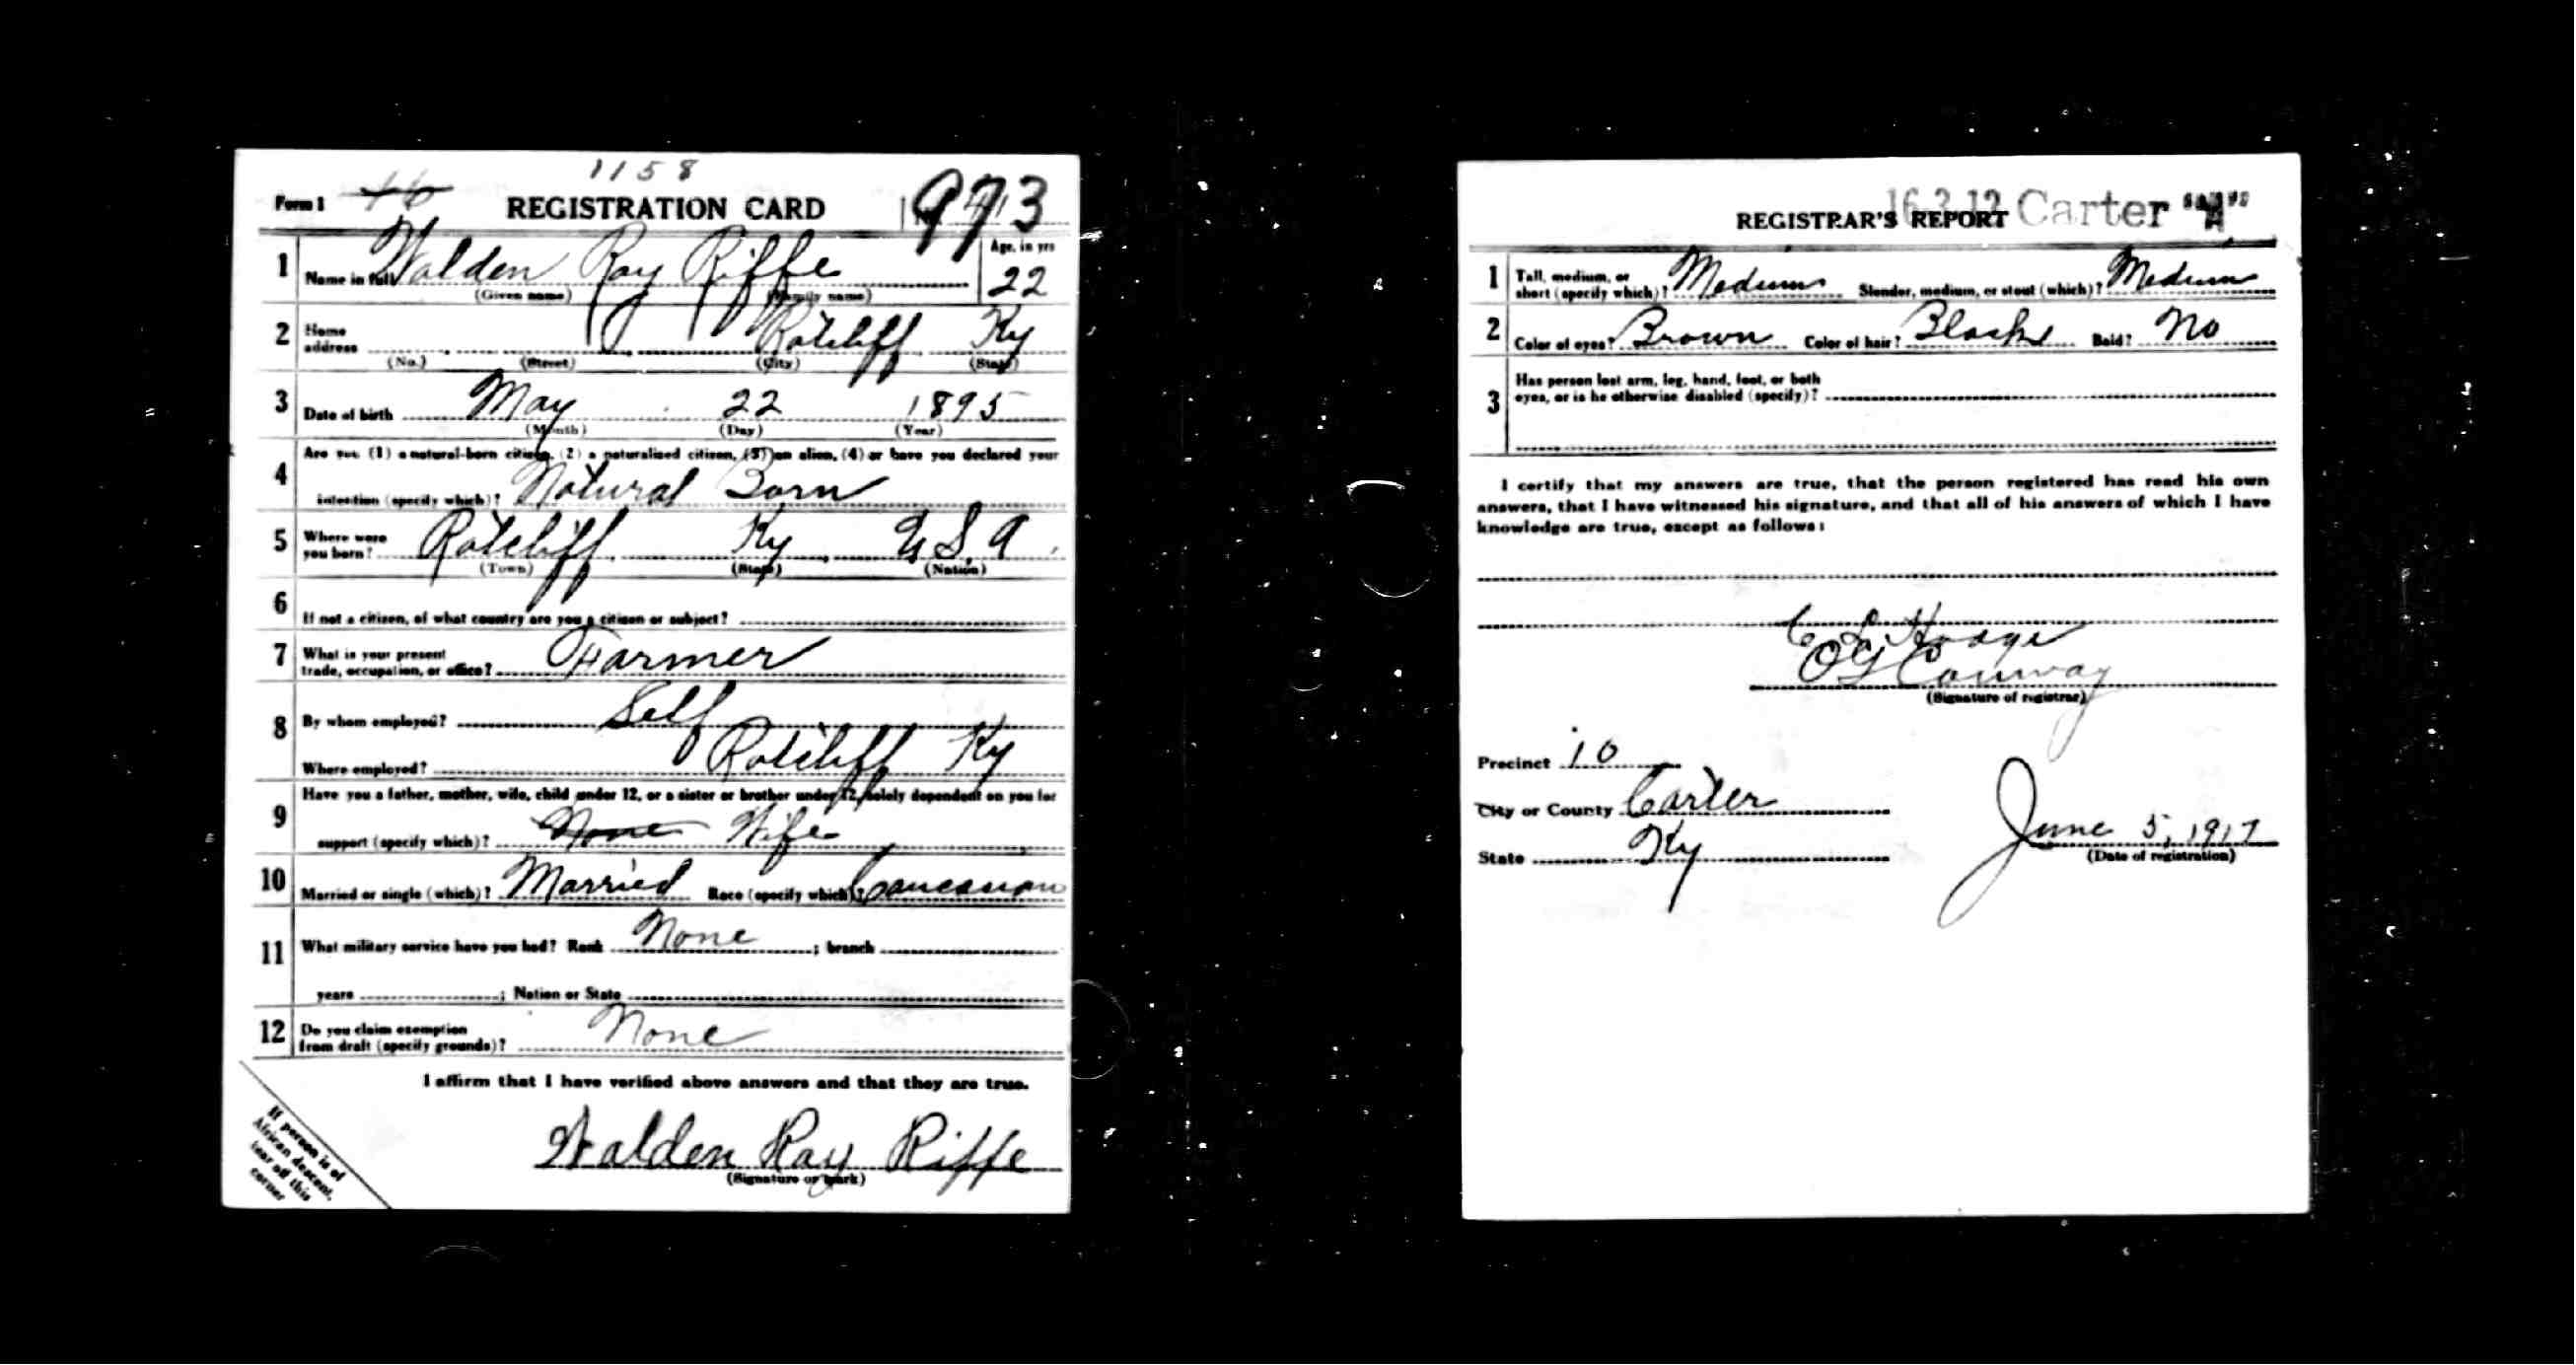 1158
Form 1 REGISTRATION CARD 973
1 Name in full Walden Ray Riffe Age, in yrs
(Given name) (Family name) 22
2 Home address Ratcliff Ky
(No.) (Street) (City) (State)
3 Date of birth May 22 1895
(Month) (Day) (Year)
4 Are you (1) a natural-born citizen, (2) a naturalized citizen, (3) an alien, (4) or have you declared your
intention (specify which)? Natural Born
5 Where were you born? Ratcliff Ky U.S.A.
(Town) (State) (Nation)
6 If not a citizen, of what country are you a citizen or subject?
7 What is your present
trade, occupation, or office? Farmer
8 By whom employed? Self
Where employed? Ratcliff Ky
9 Have you a father, mother, wife, child under 12, or a sister or brother under 12, solely dependent on you for
support (specify which)? None Wife
10 Married or single (which)? Married Race (specify which)? Caucasian
11 What military service have you had? Rank None ; branch
years ; Nation or State
12 Do you claim exemption
from draft (specify grounds)? None
I affirm that I have verified above answers and that they are true.
Walden Ray Riffe
(Signature or mark)
If person is of
African descent,
tear off this
corner
REGISTRAR'S REPORT 16-3-12 Carter "A"
1 Tall, medium, or
short (specify which)? Medium Slender, medium, or stout (which)? Medium
2 Color of eyes? Brown Color of hair? Black Bald? No
3 Has person lost arm, leg, hand, foot, or both
eyes, or is he otherwise disabled (specify)?
I certify that my answers are true, that the person registered has read his own
answers, that I have witnessed his signature, and that all of his answers of which I have
knowledge are true, except as follows:
Conway
(Signature of registrar)
Precinct 10
City or County Carter
State Ky June 5, 1917
(Date of registration)